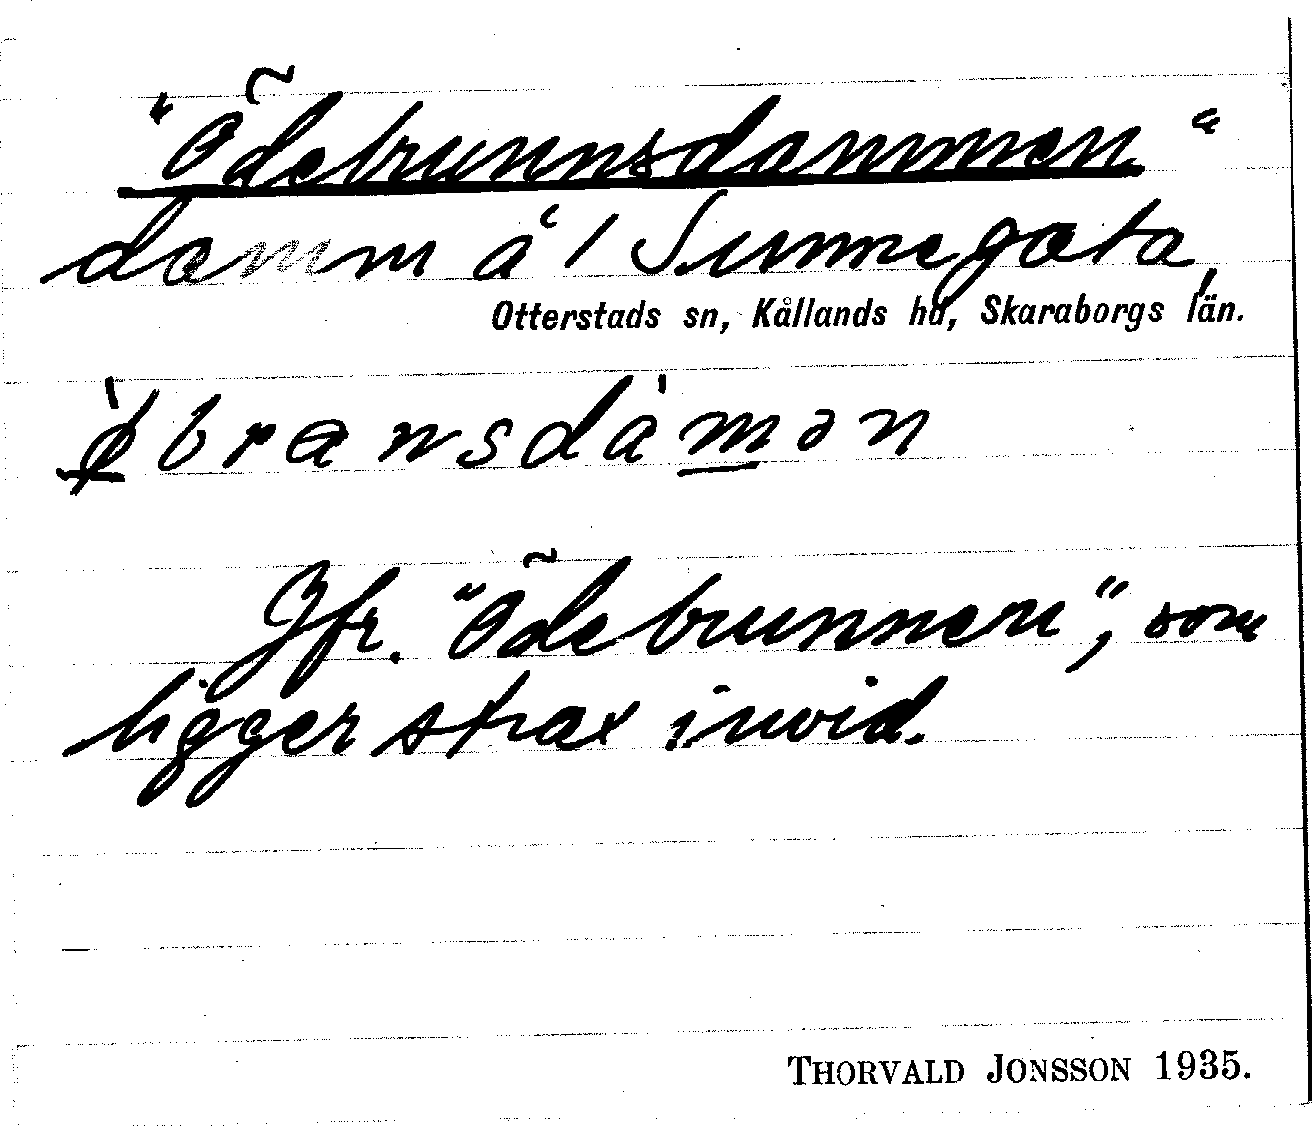 "Ödebrunnsdammen"
damm å 1 Sunnegata,
Otterstads sn, Kållands hd, Skaraborgs län.
ø̀brɵnsdàmən
Jfr. "Ödebrunnen", som
ligger strax invid.
THORVALD JONSSON 1935.